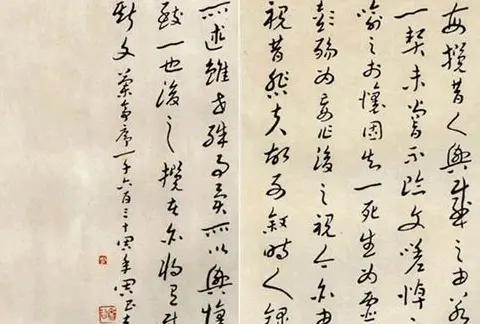 每攬昔人興感之由若
一契未嘗不臨文嗟悼
喻之於懷固知一死生為虛
彭殤為妄作後之視今亦由
視昔悲夫故列敘時人錄
所述雖世殊事異所以興懷
致一也後之攬者亦將有感
斯文 蘭亭序一千六百三十寅年